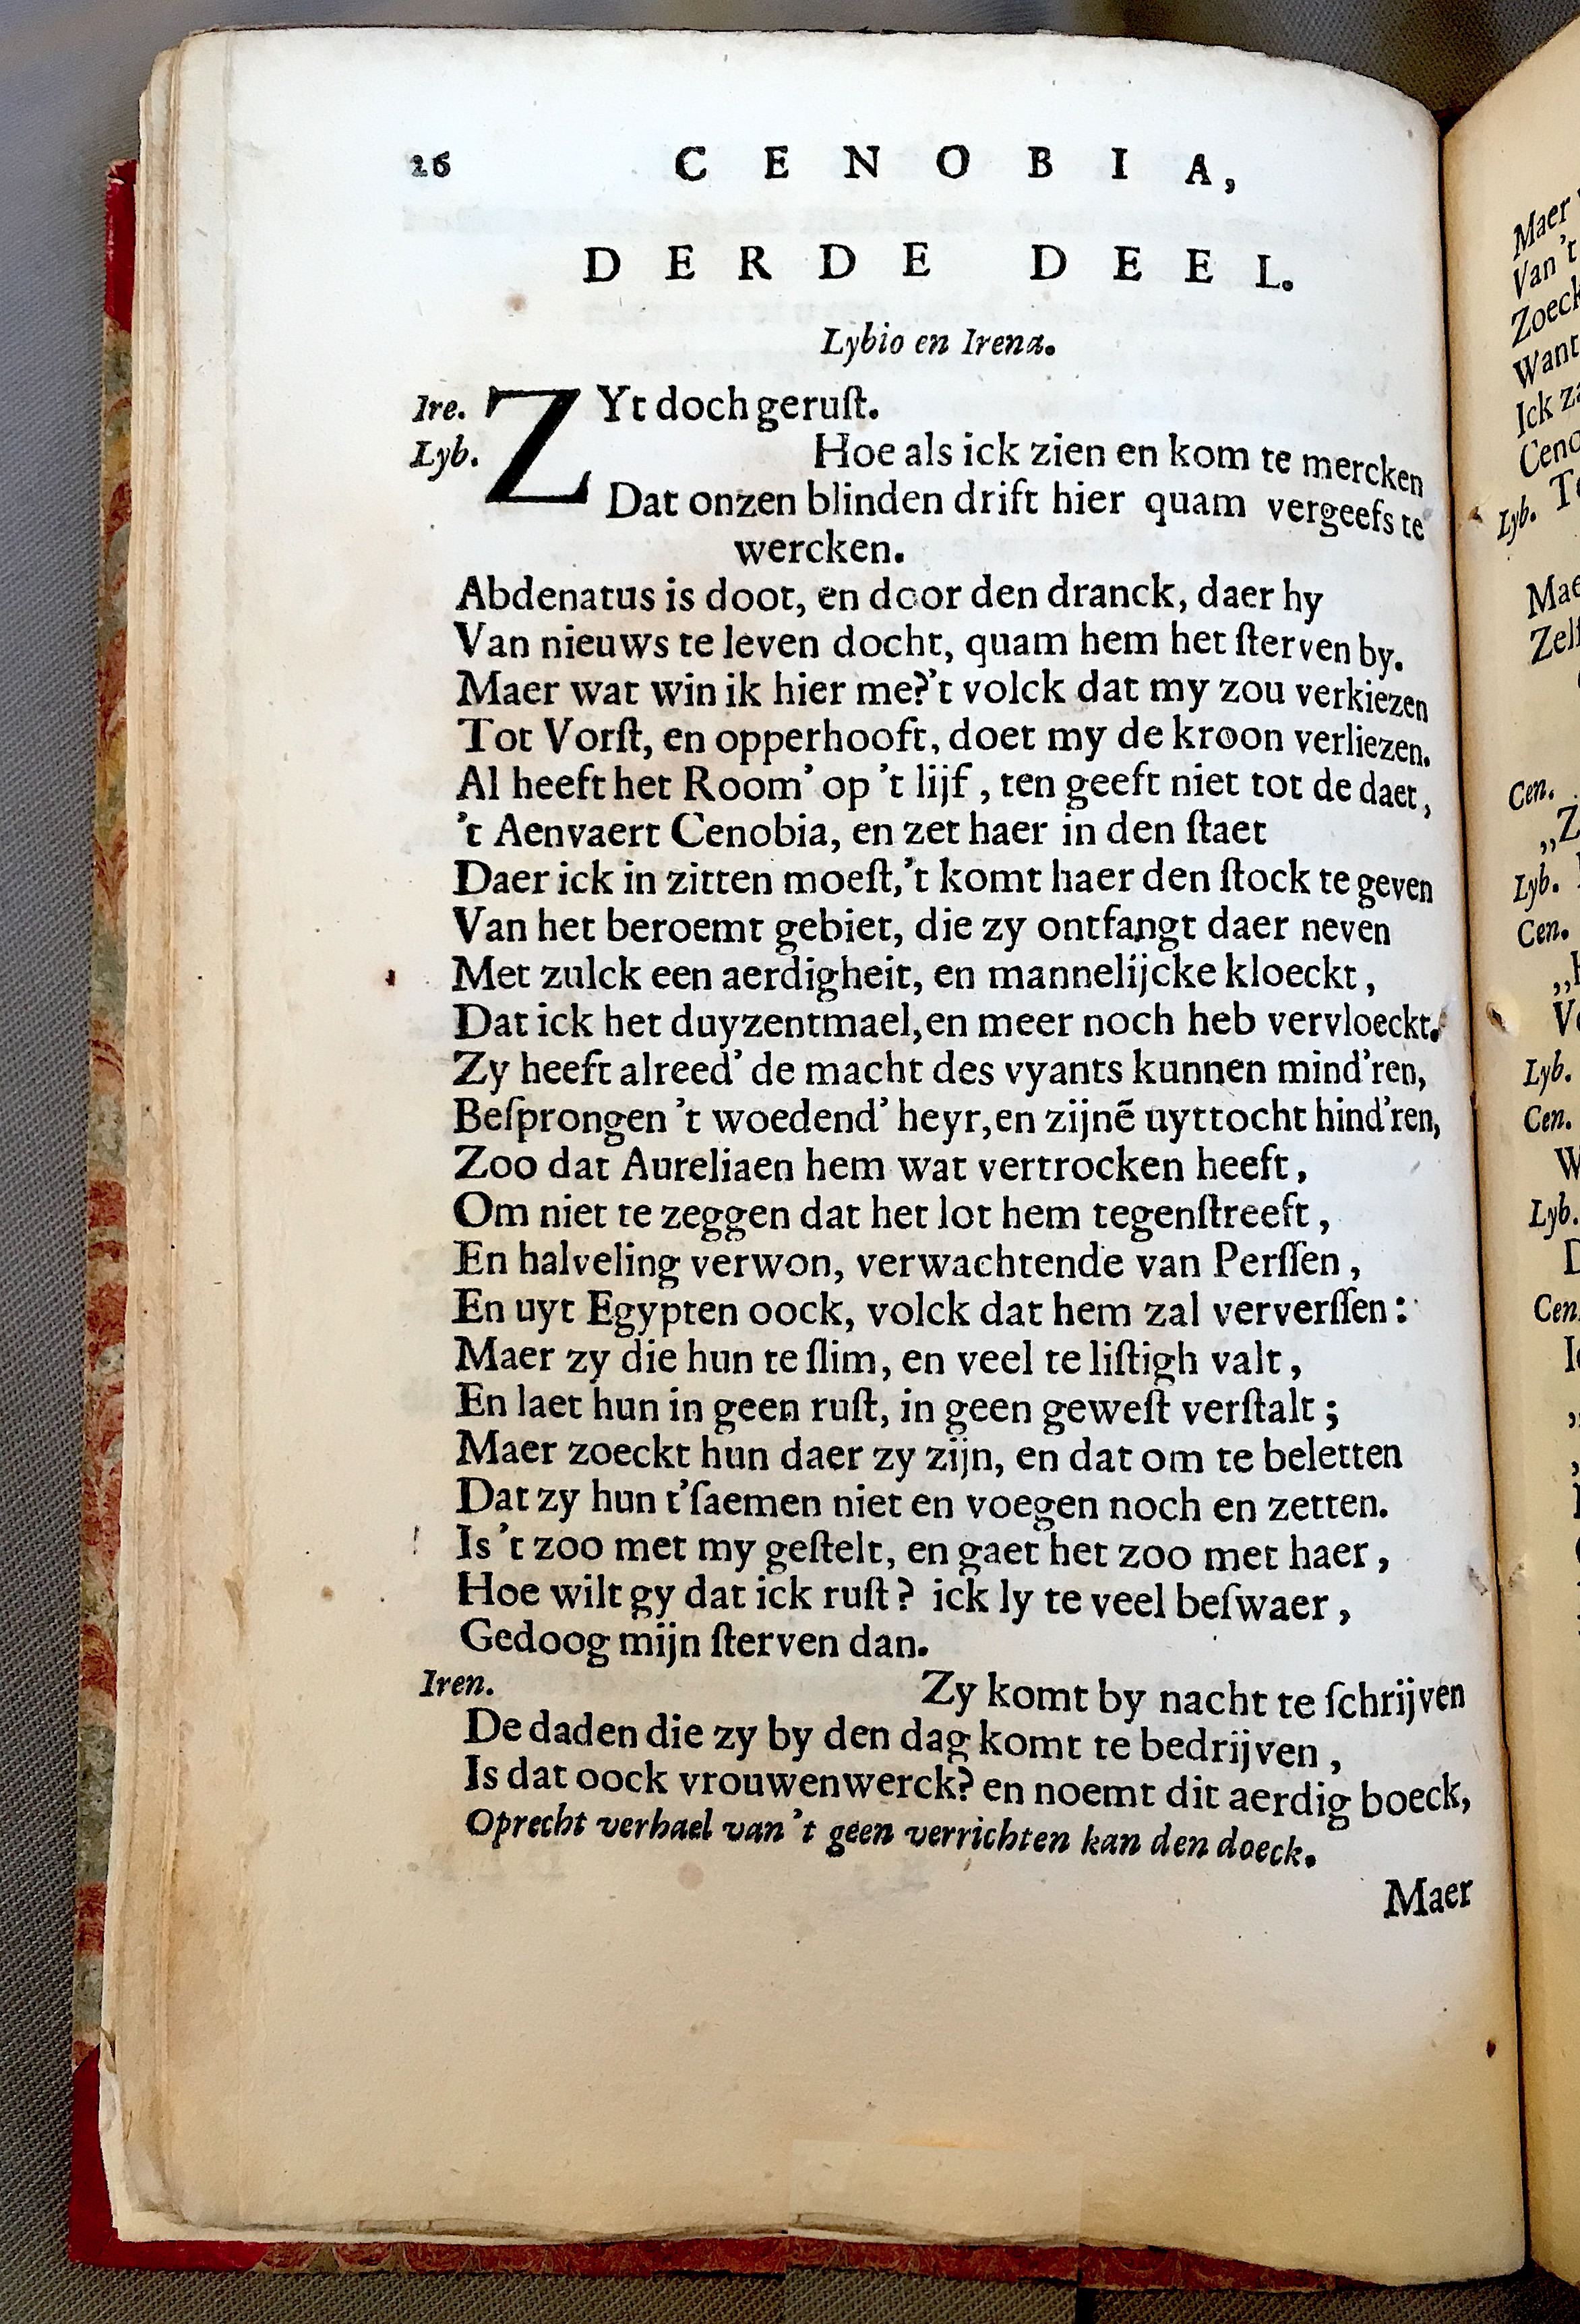 26 CENOBIA,
DERDE DEEL.
Lybio en Irena.
Ire. ZYt doch gerust.
Lyb. Hoe als ick zien en kom te mercken
Dat onzen blinden drift hier quam vergeefs te
wercken.
Abdenatus is doot, en door den dranck, daer hy
Van nieuws te leven docht, quam hem het ſterven by.
Maer wat win ik hier me?'t volck dat my zou verkiezen
Tot Vorſt, en opperhooft, doet my de kroon verliezen.
Al heeft het Room' op 't lijf, ten geeft niet tot de daet,
't Aenvaert Cenobia, en zet haer in den ſtaet
Daer ick in zitten moeſt,'t komt haer den ſtock te geven
Van het beroemt gebiet, die zy ontfangt daer neven
Met zulck een aerdigheit, en mannelijcke kloeckt,
Dat ick het duyzentmael, en meer noch heb vervloeckt.
Zy heeft alreed' de macht des vyants kunnen mind'ren,
Beſprongen 't woedend' heyr, en zijnē uyttocht hind'ren,
Zoo dat Aureliaen hem wat vertrocken heeft,
Om niet te zeggen dat het lot hem tegenſtreeft,
En halveling verwon, verwachtende van Perſſen,
En uyt Egypten oock, volck dat hem zal ververſſen:
Maer zy die hun te ſlim, en veel te liſtigh valt,
En laet hun in geen ruſt, in geen geweſt verſtalt;
Maer zoeckt hun daer zy zijn, en dat om te beletten
Dat zy hun t'ſaemen niet en voegen noch en zetten.
Is 't zoo met my geſtelt, en gaet het zoo met haer,
Hoe wilt gy dat ick ruſt? ick ly te veel beſwaer,
Gedoog mijn ſterven dan.
Iren. Zy komt by nacht te ſchrijven
De daden die zy by den dag komt te bedrijven,
Is dat oock vrouwenwerck? en noemt dit aerdig boeck,
Oprecht verhael van 't geen verrichten kan den doeck.
Maer
Maer
Van 't
Want
Lyb.
Cen.
Lyb.
Cen.
Lyb.
Cen.
Lyb.
Cen.